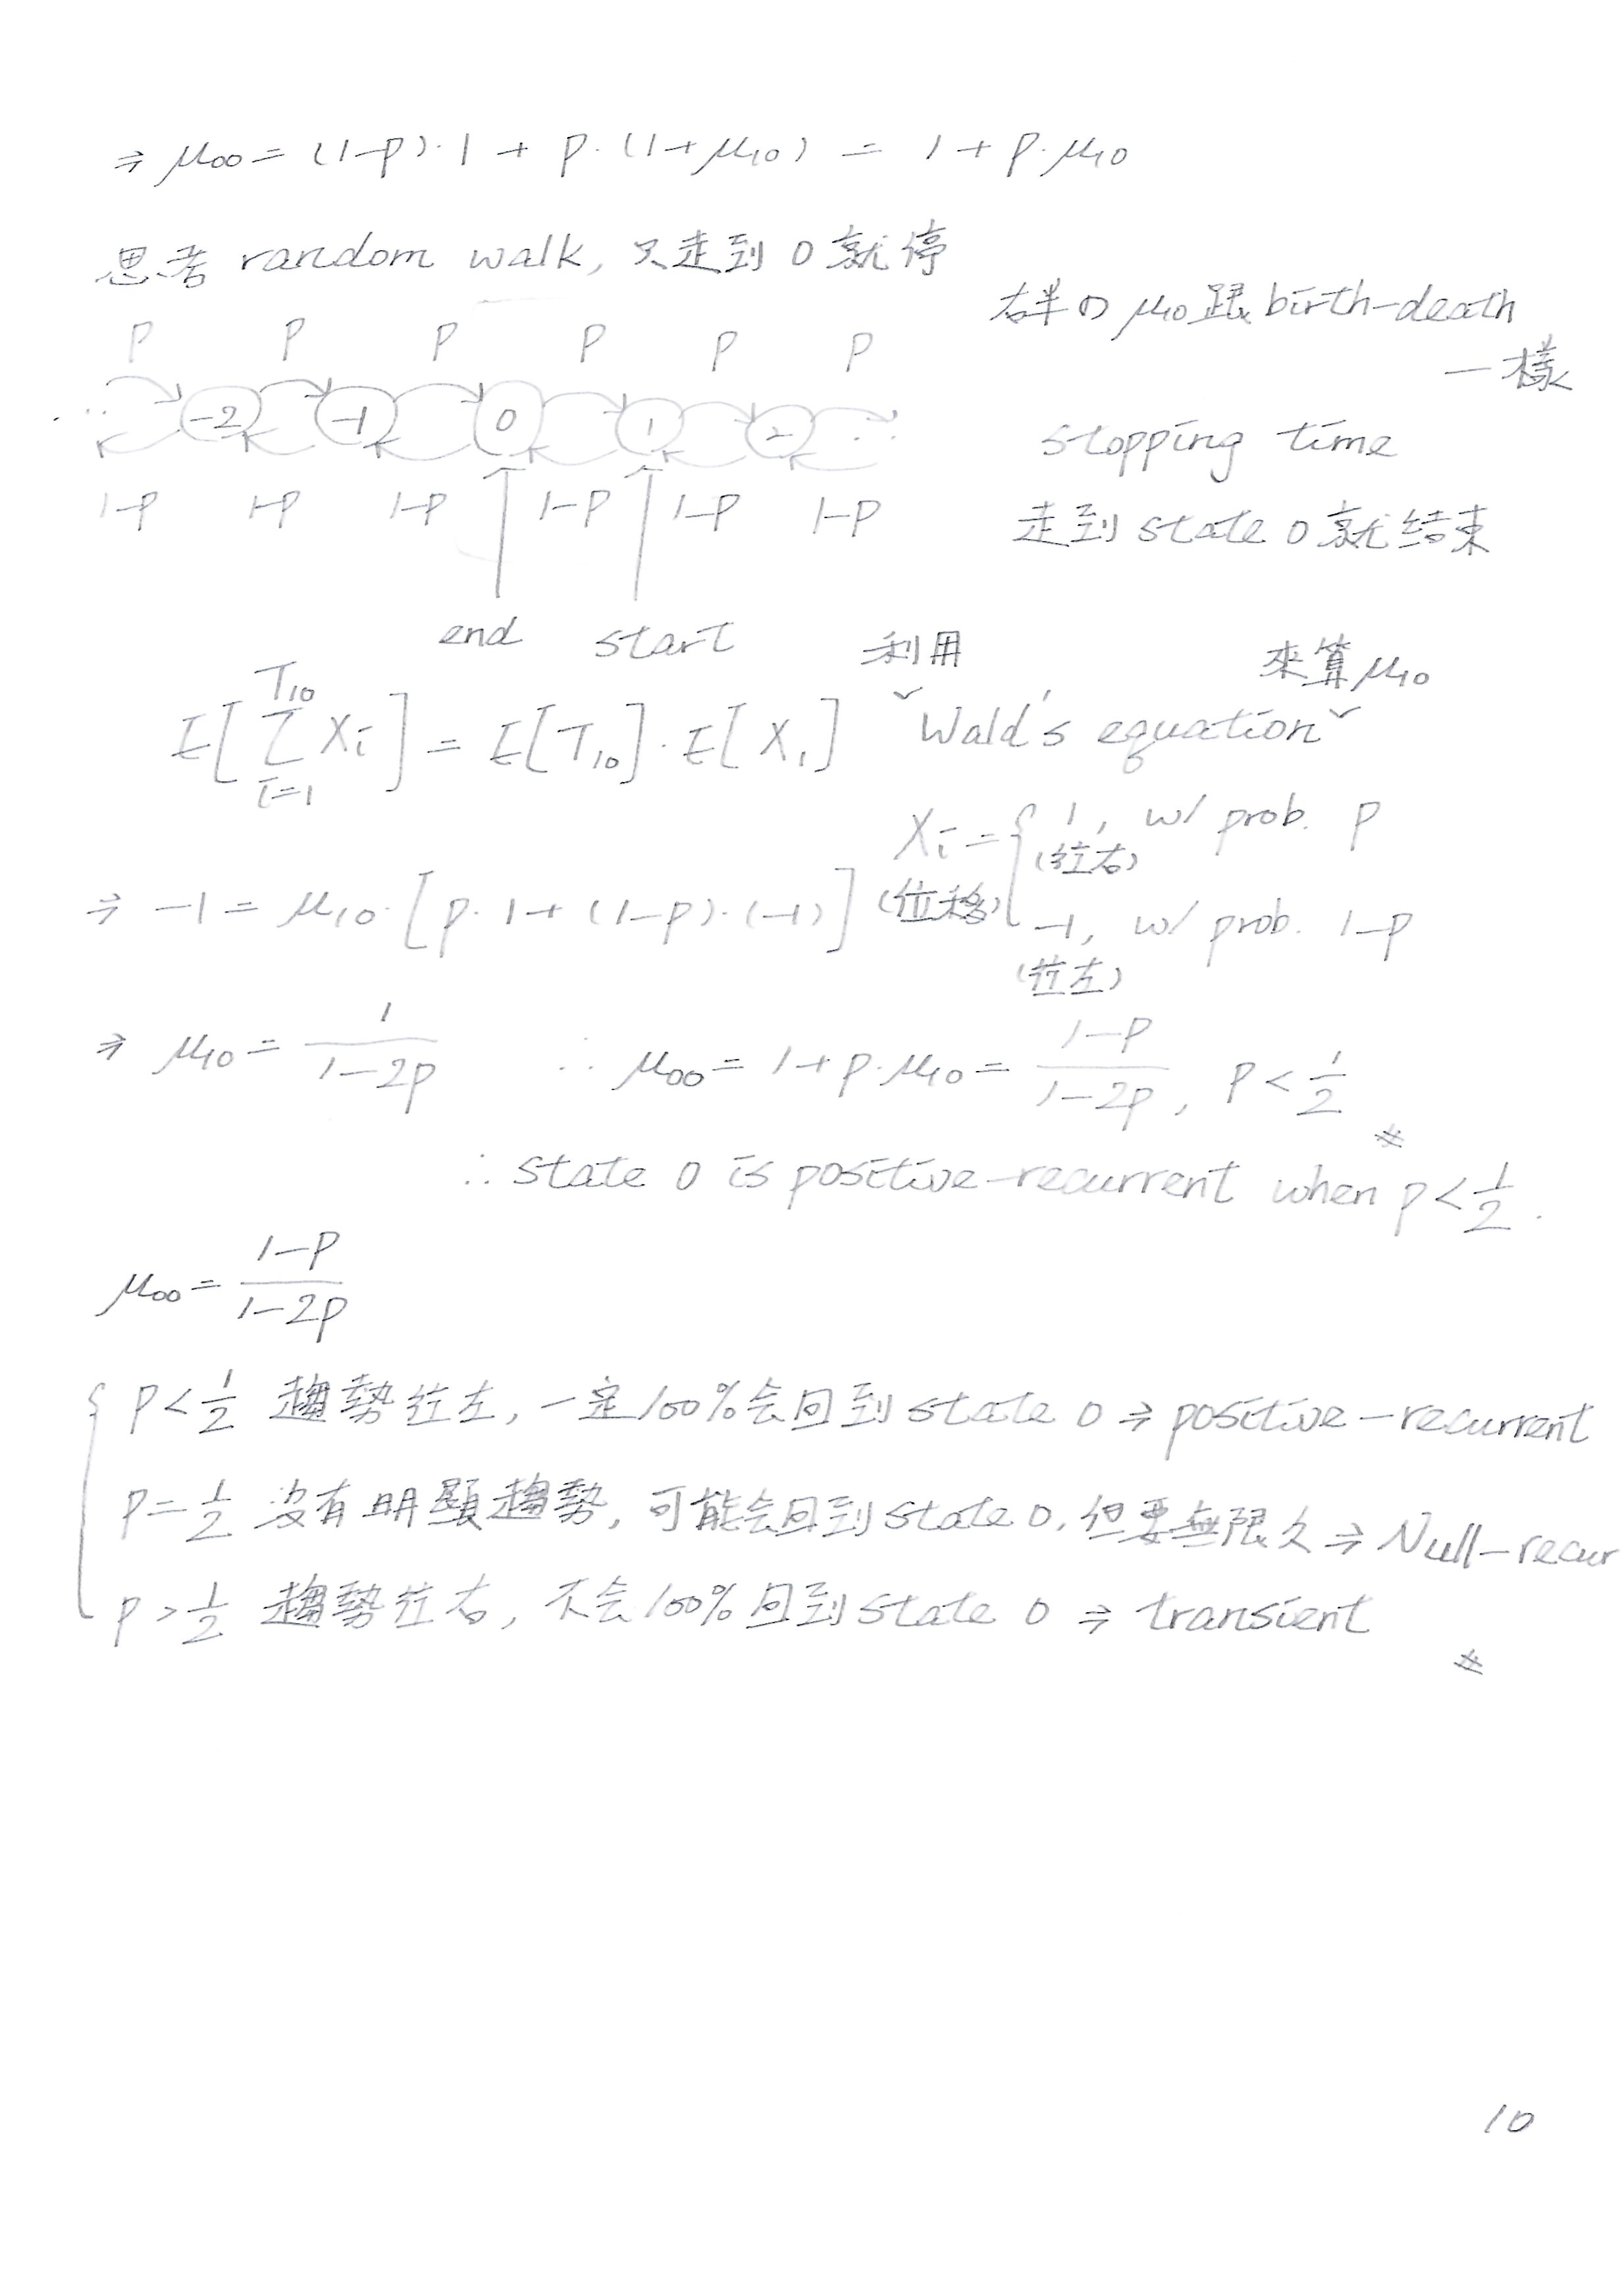 ⇒ μ₀₀ = (1-p)·1 + p·(1+μ₁₀) = 1 + p·μ₁₀
思考 random walk, 只走到 0 就停
右半の μ₁₀ 跟 birth-death
一樣
p p p p p p
... -2 -1 0 1 2 ...
1-p 1-p 1-p 1-p 1-p 1-p
stopping time
走到 state 0 就结束
end start
利用 "Wald's equation" 來算 μ₁₀
E[∑_{i=1}^{T₁₀} Xᵢ] = E[T₁₀]·E[X₁]
Xᵢ = { 1, w/ prob. p
(位移) (往右)
-1, w/ prob. 1-p
(往左)
⇒ -1 = μ₁₀·[p·1+(1-p)·(-1)]
⇒ μ₁₀ = 1/(1-2p) ∴ μ₀₀ = 1+p·μ₁₀ = (1-p)/(1-2p), p < 1/2 #
∴ state 0 is positive-recurrent when p < 1/2.
μ₀₀ = (1-p)/(1-2p)
{ p < 1/2 趨勢往左, 一定100%会回到 state 0 ⇒ positive-recurrent
p = 1/2 沒有明顯趨勢, 可能会回到 state 0, 但要無限久 ⇒ Null-recur
p > 1/2 趨勢往右, 不会100%回到 state 0 ⇒ transient
#
10